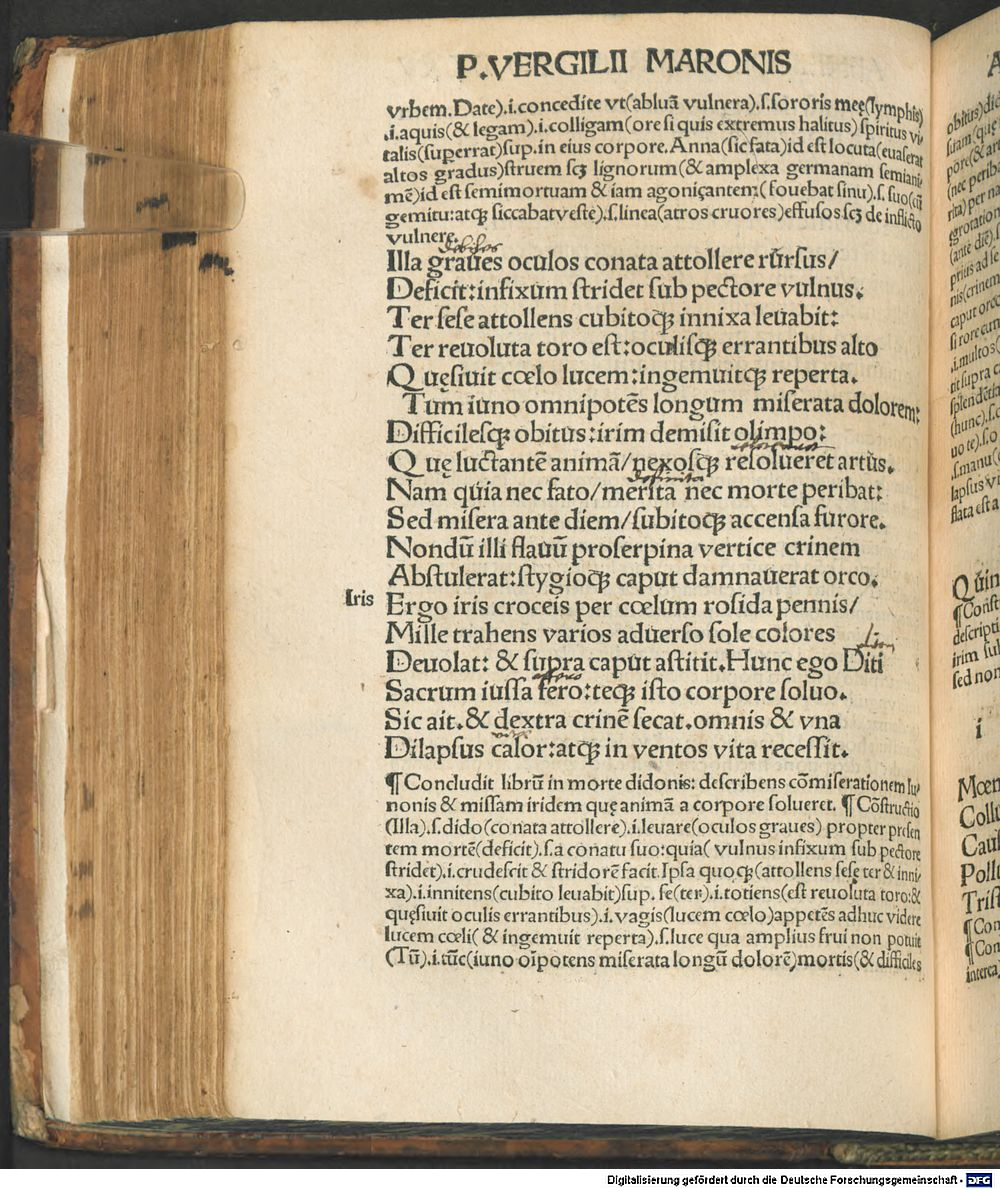 P.VERGILII MARONIS
vrbem.Date).i.concedite vt(abluā vulnera).ſ.ſororis meę(lymphis)
.i.aquis(& legam).i.colligam(ore ſi quis extremus halitus) ſpiritus vi/
talis(ſuperrat)ſup.in eius corpore.Anna(ſic fata)id eſt locuta(euaſerat
altos gradus)ſtruem ſcꝫ lignorum(& amplexa germanam ſemiani/
mē)id eſt ſemimortuam & iam agoniçantem(fouebat ſinu).ſ.ſuo(cū
gemitu:atqꝫ ſiccabat veſte).ſ.linea(atros cruores)effuſos ſcꝫ de inflicto
vulnere.
debiles
Illa graues oculos conata attollere rurſus/
Deficit:infixum ſtridet ſub pectore vulnus.
Ter ſeſe attollens cubitoqꝫ innixa leuabit:
Ter reuoluta toro eſt:oculiſqꝫ errantibus alto
Quęſiuit cœlo lucem:ingemuitqꝫ reperta.
Tum iuno omnipotēs longum miſerata dolorem:
Difficileſqꝫ obitus:irim demiſit olimpo:
Quę luctantē animā/nexoſqꝫ reſolueret artus.
Nam quia nec fato/merita nec morte peribat:
Sed miſera ante diem/ſubitoqꝫ accenſa furore.
Nondū illi flauū proſerpina vertice crinem
Abſtulerat:ſtygioqꝫ caput damnauerat orco.
Iris Ergo iris croceis per cœlum roſida pennis/
Mille trahens varios aduerſo ſole colores
Deuolat: & ſupra caput aſtitit.Hunc ego Diti
Sacrum iuſſa fero:teqꝫ iſto corpore ſoluo.
Sic ait.& dextra crinē ſecat.omnis & vna
Dilapſus calor:atqꝫ in ventos vita receſſit.
¶ Concludit librū in morte didonis: deſcribens cōmiſerationem Iu/
nonis & miſſam iridem quę animā a corpore ſolueret. ¶ Cōſtructio
(Illa).ſ.dido(conata attollere).i.leuare(oculos graues) propter preſen
tem mortē(deficit).ſ.a conatu ſuo:quia( vulnus infixum ſub pectore
ſtridet).i.crudeſcit & ſtridorē facit.Ipſa quoqꝫ(attollens ſeſe ter & inni/
xa).i.innitens(cubito leuabit)ſup. ſe(ter).i.totiens(eſt reuoluta toro:&
quęſiuit oculis errantibus).i.vagis(lucem cœlo)appetēs adhuc videre
lucem cœli( & ingemuit reperta).ſ.luce qua amplius frui non potuit
(Tū).i.tūc(iuno oīpotens miſerata longū dolorē)mortis(& difficiles
Digitalisierung gefördert durch die Deutsche Forschungsgemeinschaft - DFG